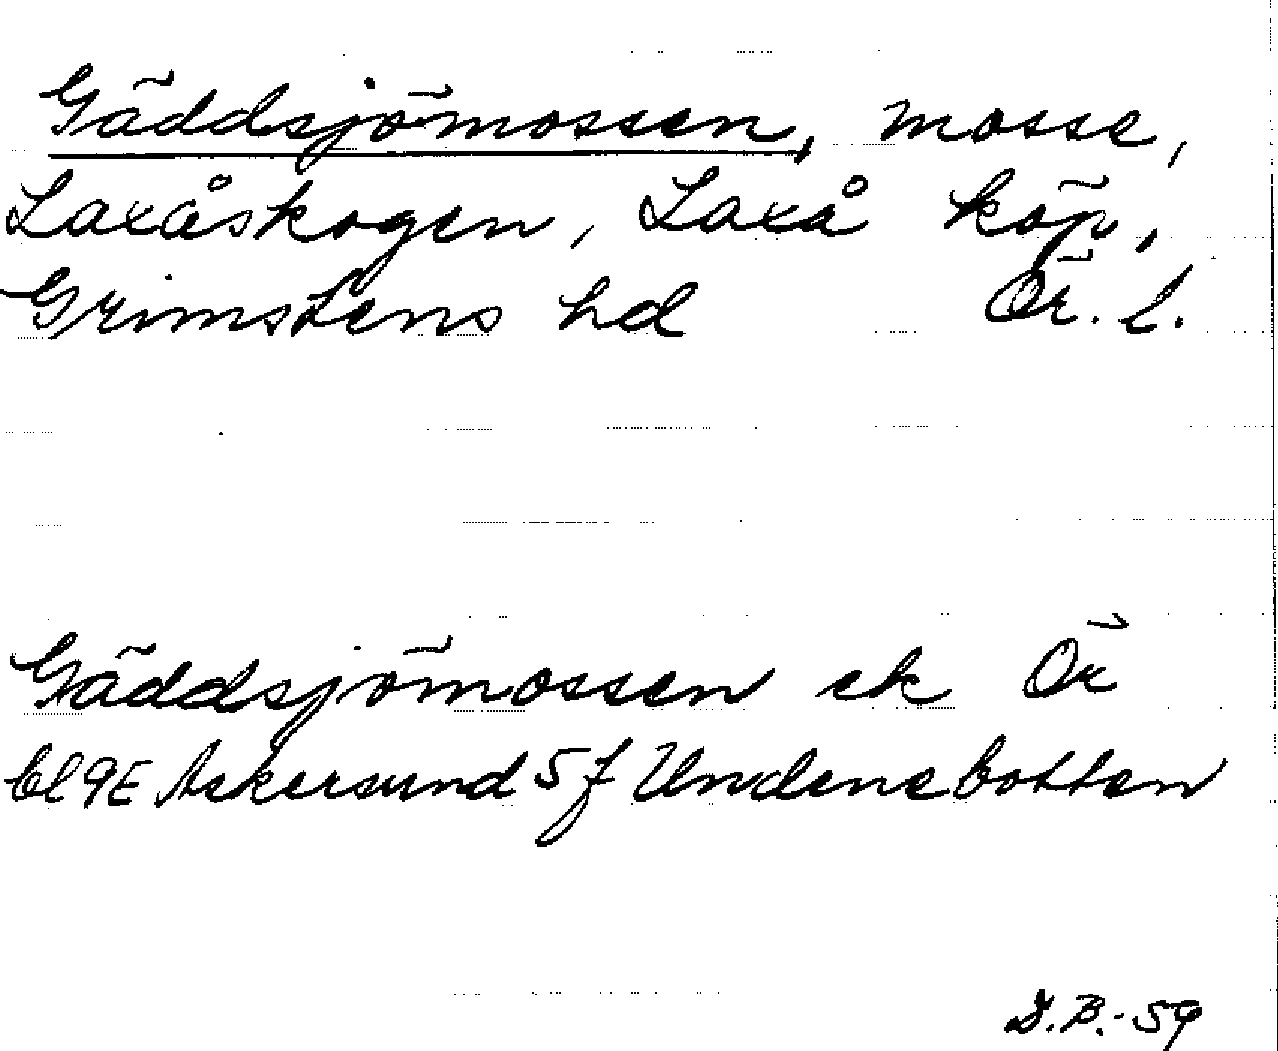 Gäddsjömossen, mosse,
Laxåskogen, Laxå köp,
Grimstens hd Ör. l.
Gäddsjömossen ek Ör
bl 9E Askersund 5f Undenebotten
D.B.-59